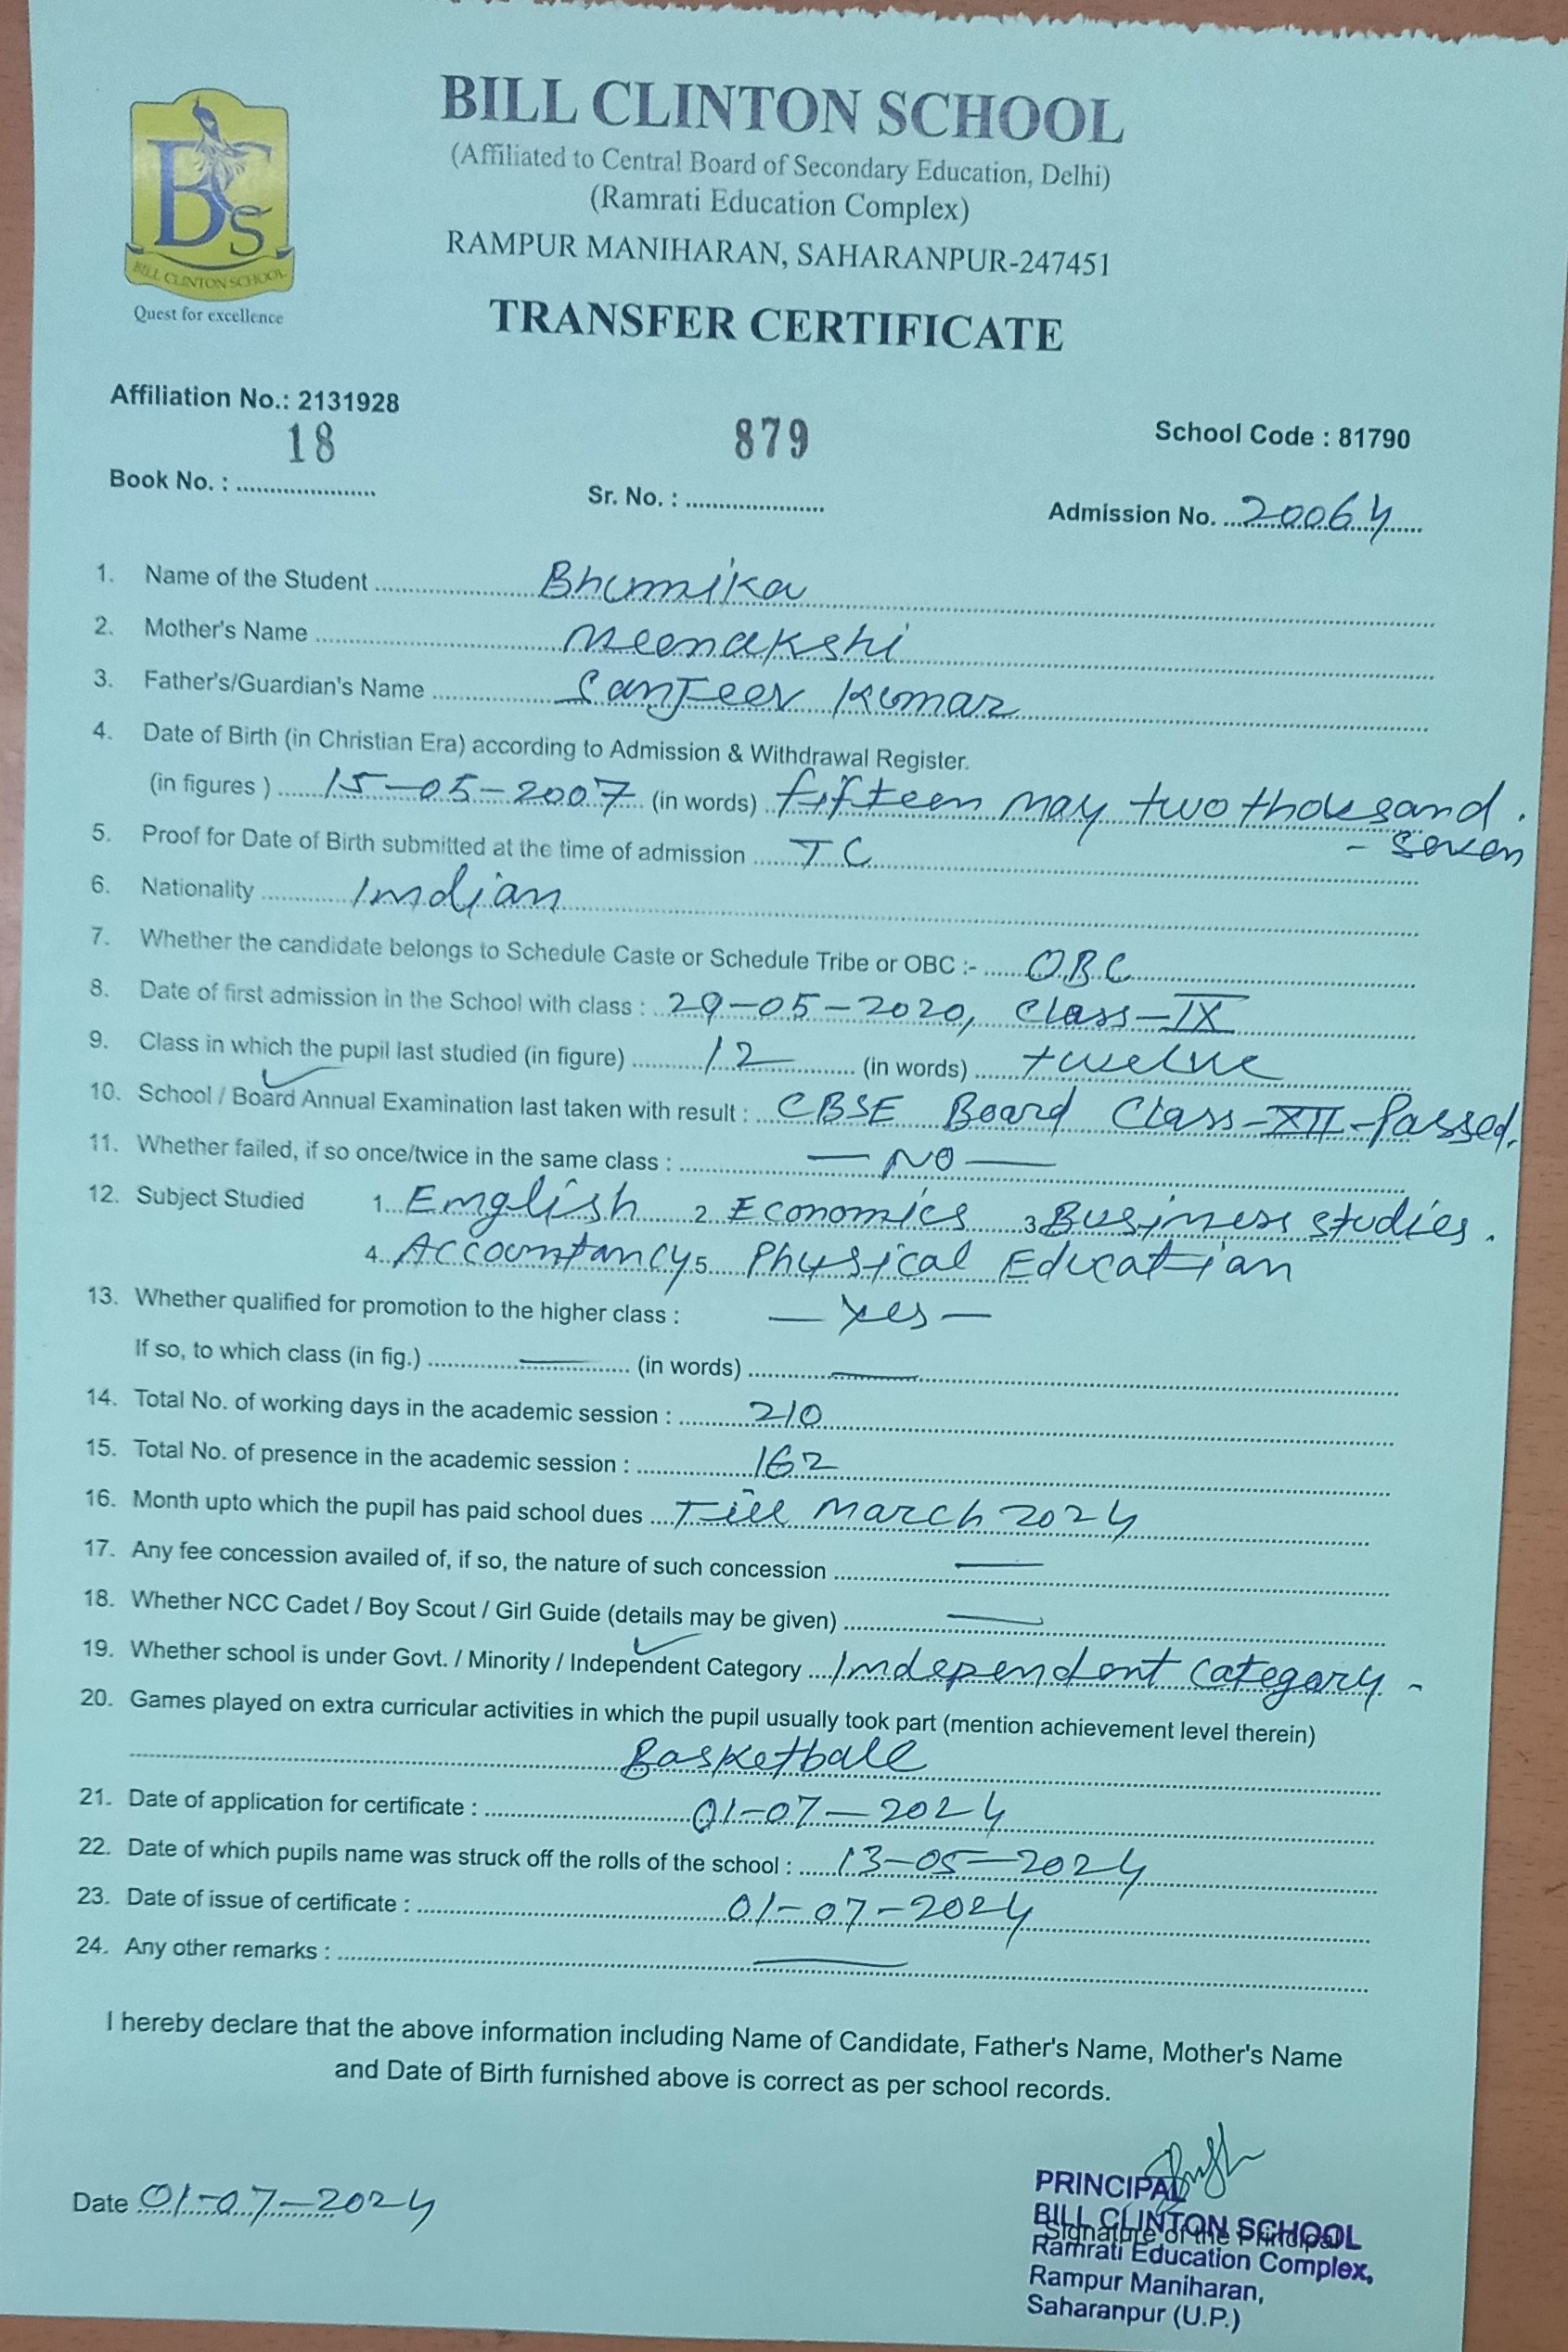 BILL CLINTON SCHOOL
(Affiliated to Central Board of Secondary Education, Delhi)
(Ramrati Education Complex)
RAMPUR MANIHARAN, SAHARANPUR-247451
BCS
BILL CLINTON SCHOOL
Quest for excellence
TRANSFER CERTIFICATE
Affiliation No.: 2131928
School Code : 81790
Book No. : 18 Sr. No. : 879 Admission No. 20064
1. Name of the Student Bhumika
2. Mother's Name Meenakshi
3. Father's/Guardian's Name Sanjeev Kumar
4. Date of Birth (in Christian Era) according to Admission & Withdrawal Register.
(in figures ) 15-05-2007 (in words) fifteen may two thousand
- seven
5. Proof for Date of Birth submitted at the time of admission TC
6. Nationality Indian
7. Whether the candidate belongs to Schedule Caste or Schedule Tribe or OBC :- OBC
8. Date of first admission in the School with class : 29-05-2020, Class-IX
9. Class in which the pupil last studied (in figure) 12 (in words) twelve
10. School / Board Annual Examination last taken with result : CBSE Board Class-XII-Passed.
11. Whether failed, if so once/twice in the same class : — NO —
12. Subject Studied 1. English 2. Economics 3. Business studies.
4. Accountancy 5. Physical Education
13. Whether qualified for promotion to the higher class : — Yes —
If so, to which class (in fig.) — (in words) —
14. Total No. of working days in the academic session : 210
15. Total No. of presence in the academic session : 162
16. Month upto which the pupil has paid school dues Till March 2024
17. Any fee concession availed of, if so, the nature of such concession —
18. Whether NCC Cadet / Boy Scout / Girl Guide (details may be given) —
19. Whether school is under Govt. / Minority / Independent Category Independent Category -
20. Games played on extra curricular activities in which the pupil usually took part (mention achievement level therein)
Basketball
21. Date of application for certificate : 01-07-2024
22. Date of which pupils name was struck off the rolls of the school : 13-05-2024
23. Date of issue of certificate : 01-07-2024
24. Any other remarks : —
I hereby declare that the above information including Name of Candidate, Father's Name, Mother's Name
and Date of Birth furnished above is correct as per school records.
Date 01-07-2024
PRINCIPAL
BILL CLINTON SCHOOL
Signature of the Principal
Ramrati Education Complex,
Rampur Maniharan,
Saharanpur (U.P.)